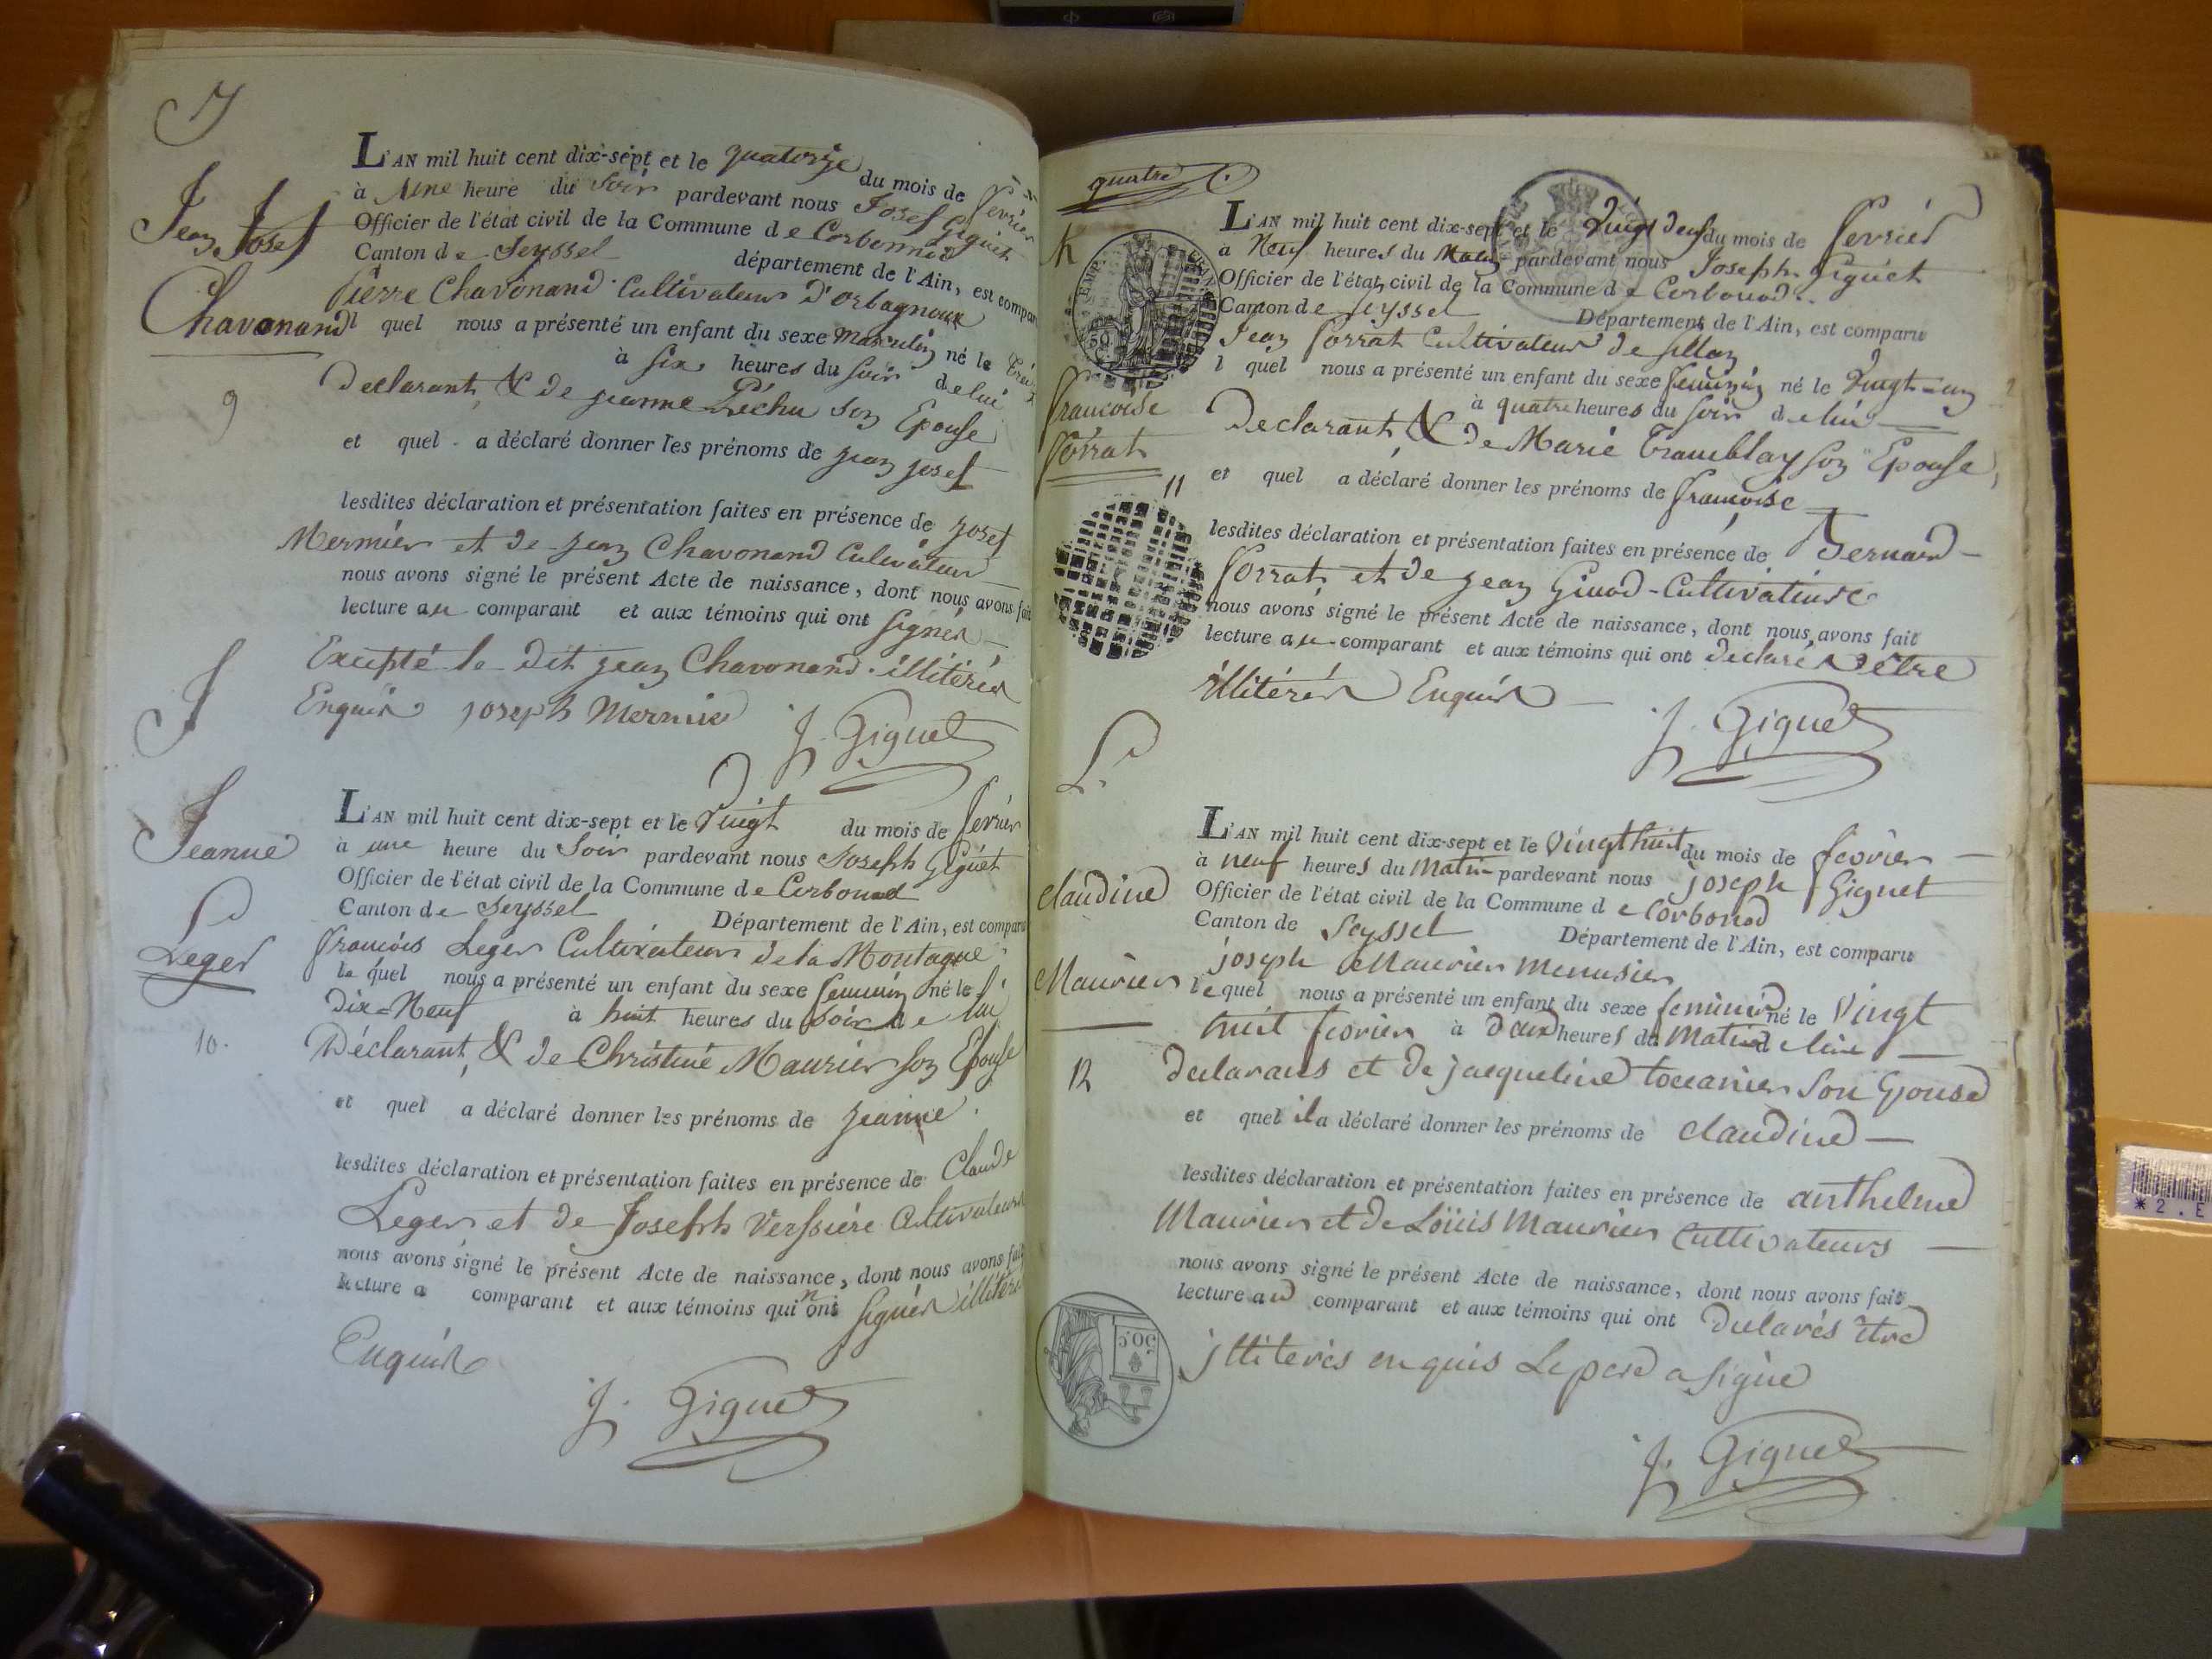 L'AN mil huit cent dix-sept et le quatorze du mois de fevrier
à une heure du soir pardevant nous Josef Giguet
Officier de l'état civil de la Commune de Corbonod
Canton de Seyssel département de l'Ain, est comparu
Pierre Chavonand Cultivateur d'orbagnoux
l quel nous a présenté un enfant du sexe masculin né le treize
à six heures du soir de lui
Declarant, & de jeanne Péchu son Epouse
et quel a déclaré donner les prénoms de jean josef
lesdites déclaration et présentation faites en présence de josef
Mermier et de jean Chavonand Cultivateur
nous avons signé le présent Acte de naissance, dont nous avons fait
lecture au comparant et aux témoins qui ont signér
Excepté le dit jean Chavonand illitérér
Enquir joseph Mermier
J. Giguet
Jean Josef
Chavonand
9
L'AN mil huit cent dix-sept et le Vingt du mois de fevrier
à une heure du Soir pardevant nous Joseph Giguet
Officier de l'état civil de la Commune de Corbonod
Canton de Seyssel Département de l'Ain, est comparu
francois Leger Cultivateur de la Montagne
le quel nous a présenté un enfant du sexe feminin né le
dix-Neuf à huit heures du Soir de lui
Déclarant, & de Christine Maurier son Epouse
et quel a déclaré donner les prénoms de jeanne
lesdites déclaration et présentation faites en présence de Claude
Leger et de Joseph Verssiere Cultivateurs
nous avons signé le présent Acte de naissance, dont nous avons fait
lecture a comparant et aux témoins qui n ont signér illitérér
Enquir
J. Giguet
Jeanne
Leger
10.
quatre
L'AN mil huit cent dix-sept et le Vingt deux du mois de fevrier
à Neuf heures du Matin pardevant nous Joseph Giguet
Officier de l'état civil de la Commune de Corbonod
Canton de Seyssel Département de l'Ain, est comparu
Jean forrat Cultivateur de sillan
l quel nous a présenté un enfant du sexe feminin né le Vingt-un
à quatre heures du soir de lui
Declarant, & de Marie Tramblay son Epouse,
et quel a déclaré donner les prénoms de francoise
lesdites déclaration et présentation faites en présence de Bernard
forrat et de jean Ginod Cultivateurs
nous avons signé le présent Acte de naissance, dont nous avons fait
lecture au comparant et aux témoins qui ont declarér d'être
illitérér Enquir
J. Giguet
francoise
forrat
11
50 C.
L'AN mil huit cent dix-sept et le Vingt huit du mois de fevrier
à neuf heures du Matin pardevant nous joseph Giguet
Officier de l'état civil de la Commune de Corbonod
Canton de Seyssel Département de l'Ain, est comparu
joseph Maurier menusier
le quel nous a présenté un enfant du sexe feminin né le Vingt
huit fevrier à deux heures du Matin de lui
declarans et de jacqueline toccanier son Epouse
et quel il a déclaré donner les prénoms de claudine
lesdites déclaration et présentation faites en présence de anthelme
Maurier et de Loüis Maurier Cultivateurs
nous avons signé le présent Acte de naissance, dont nous avons fait
lecture au comparant et aux témoins qui ont declarés être
jlliterés enquis Le pere a signe
J. Giguet
claudine
Maurier
12
50 C.